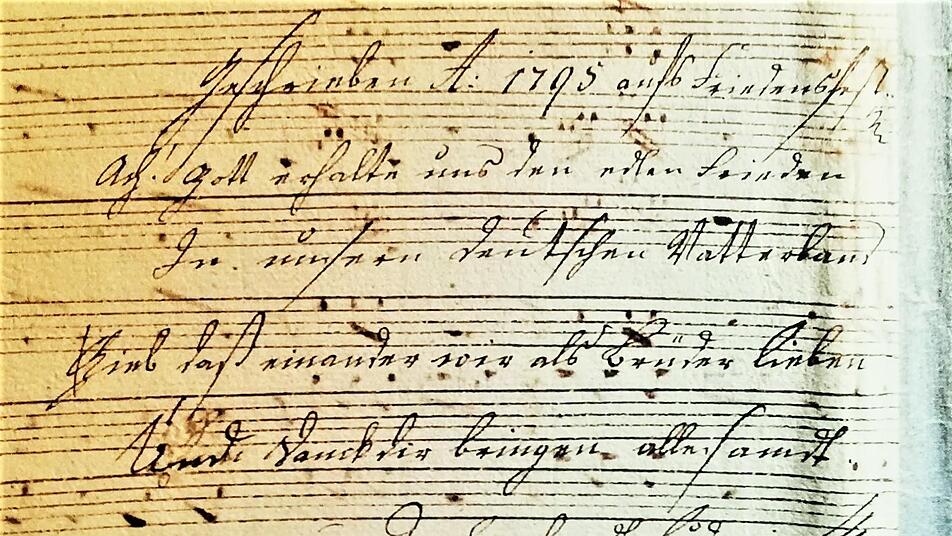 Geschrieben A: 1795 aufs Friedensfest.
Ach! Gott erhalte uns den edlen Frieden
In unsern deutschen Vatterland
Gieb daß einander wir als Brüder lieben
Und Danck dir bringen alle samdt.